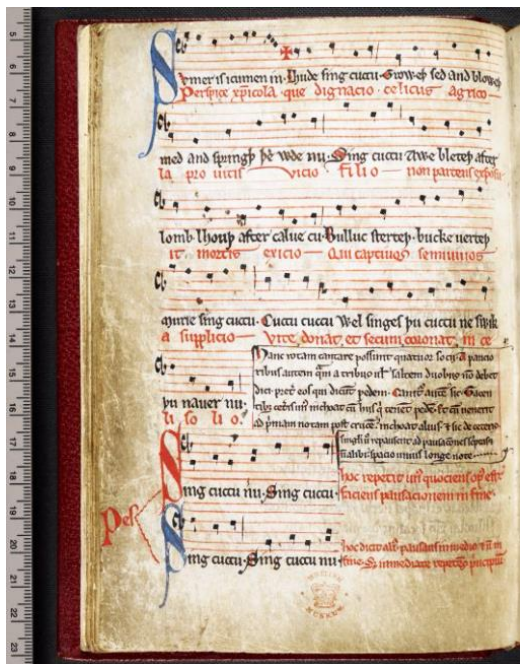 Svmer is icumen in. Lhude sing cuccu. Groweþ sed and bloweþ
Perspice xp̄icola. que dignacio. celicus agrico
med and springþ þe wde nu. Sing cuccu Awe bleteþ after
la pro uitis vicio filio non parcens exposu
lomb. lhouþ after calue cu. Bulluc sterteþ. bucke uerteþ
it mortis exicio Qui captiuos semiuiuos
murie sing cuccu. Cuccu cuccu Wel singes þu cuccu ne swik
a supplicio Vite donat et secum coronat in ce
þu nauer nu.
li so li o.
Hanc rotam cantare possunt quatuor socij. A paucio
ribus autem q̄m a tribus ul̄ saltem duobus nō debet
dici. p̄ter eos qui dicūt pedem. Canit̉ autē sic. Tacen
tibꝫ ceteris unꝰ inchoat cū hiis q̉ tenēt pedē. ⁊ cū uenerit
ad p̉mam notam post crucē. inchoat alius. ⁊ sic de ceteris
singli ū repausent ad pausaciones
nō alibi. spacio unius longe note
Pes
Sing cuccu nu. Sing cuccu.
hoc repetit unꝰ quociens opꝰ est
faciens pausacionem in fine
Sing cuccu. Sing cuccu nu
hoc dicit alius pausans in medio ⁊ nō in
fine. S; inmediate repetens p̉ncipiū
5
6
7
8
9
10
11
12
13
14
15
16
17
18
19
20
21
22
23